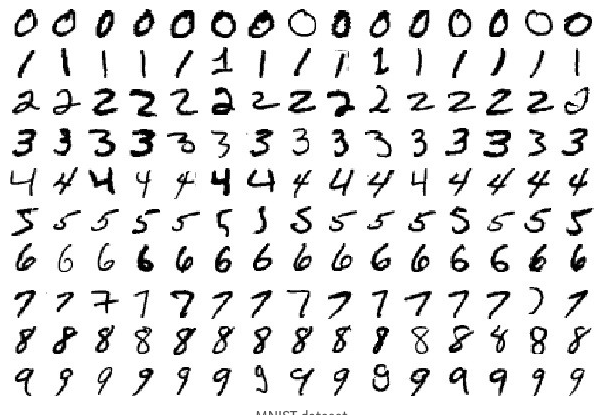 0 0 0 0 0 0 0 0 0 0 0 0 0 0 0
1 1 1 1 1 1 1 1 1 1 1 1 1 1 1
2 2 2 2 2 2 2 2 2 2 2 2 2 2 2
3 3 3 3 3 3 3 3 3 3 3 3 3 3 3
4 4 4 4 4 4 4 4 4 4 4 4 4 4 4
5 5 5 5 5 5 5 5 5 5 5 5 5 5 5
6 6 6 6 6 6 6 6 6 6 6 6 6 6 6
7 7 7 7 7 7 7 7 7 7 7 7 7 7 7
8 8 8 8 8 8 8 8 8 8 8 8 8 8 8
9 9 9 9 9 9 9 9 9 9 9 9 9 9 9
MNIST dataset